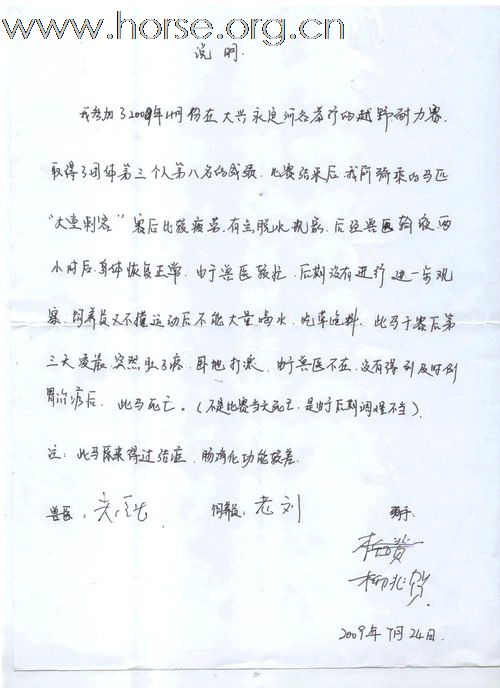 www.horse.org.cn
说明.
我参加了2009年4月份在大兴永定河名举行的越野耐力赛.
取得了团体第三个人第八名的成绩. 比赛结束后我所骑乘的马匹
"大堂刺客"赛后比较疲劳.有点脱水现象.后经兽医输液两
小时后.身体恢复正常.由于兽医较忙.后期没有进行进一步观
察.饲养员又不懂运动后不能大量喝水.吃草吃料.此马于赛后第
三天凌晨.突然肚子疼.卧地打滚.由于兽医不在.没有得到及时倒
胃治疗后.此马死亡。(不是比赛当天死亡.是由于后期调理不当).
注:此马原来得过结症.肠消化功能较差.
兽医: 饲养员: 老刘 骑手:
2009年7月24日.